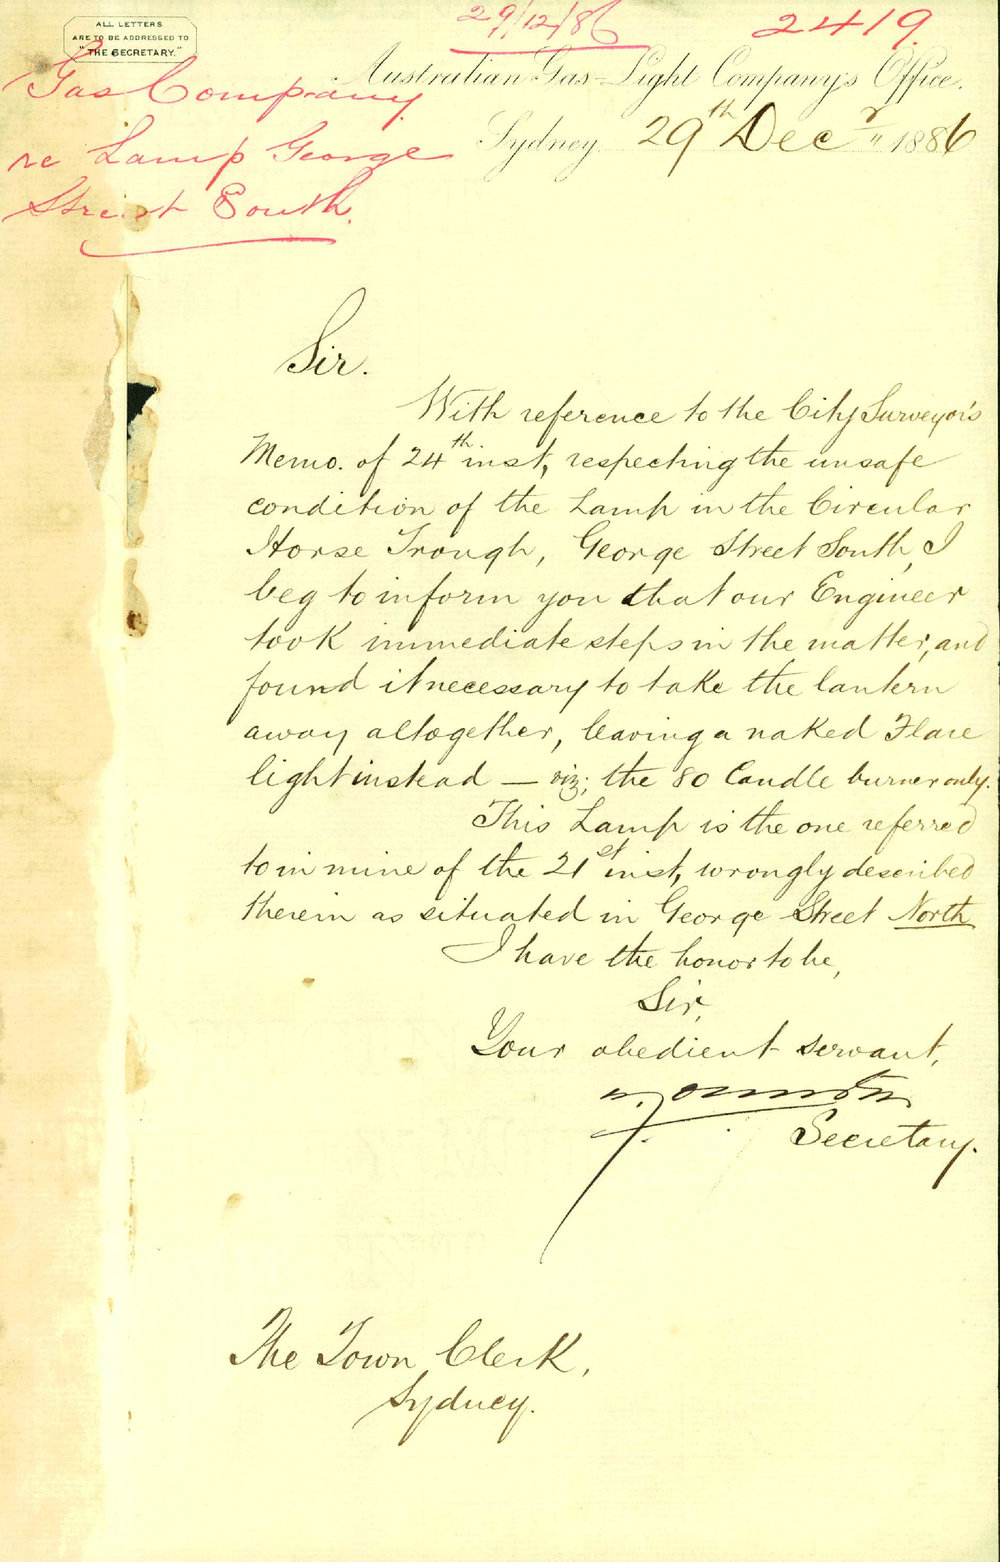 ALL LETTERS
ARE TO BE ADDRESSED TO
"THE SECRETARY."
29/12/86
2419
Gas Company
re Lamp George
Street South.
Australian Gas-Light Company's Office.
Sydney 29th Decr 1886
Sir.
With reference to the City Surveyor's
Memo. of 24th inst, respecting the unsafe
condition of the Lamp in the Circular
Horse Trough, George Street South, I
beg to inform you that our Engineer
took immediate steps in the matter, and
found it necessary to take the lantern
away altogether, leaving a naked Flare
light instead — viz; the 80 Candle burner only.
This Lamp is the one referred
to in mine of the 21st inst, wrongly described
therein as situated in George Street North
I have the honor to be,
Sir,
Your obedient servant,
Secretary.
The Town Clerk,
Sydney.